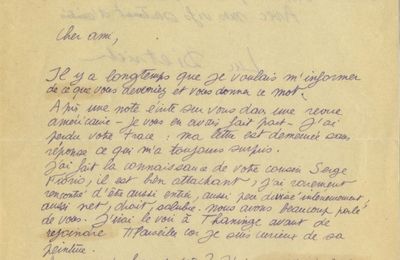 Cher ami,
Il y a longtemps que je voulais m'informer
de ce que vous deveniez et vous donner ce mot.
Après une note écrite sur vous dans une revue
américaine – je vous en avais fait part – j'ai
perdu votre trace : ma lettre est demeurée sans
réponse ce qui m'a toujours surpris.
J'ai fait la connaissance de votre cousin Serge
Fiorio, il est bien attachant, j'ai rarement
rencontré d'être aussi entier, aussi peu divisé intérieurement
aussi net, droit, salubre. Nous avons beaucoup parlé
de vous. J'irai le voir à Thaninge avant de
rejoindre Marseille car je suis curieux de sa
peinture.